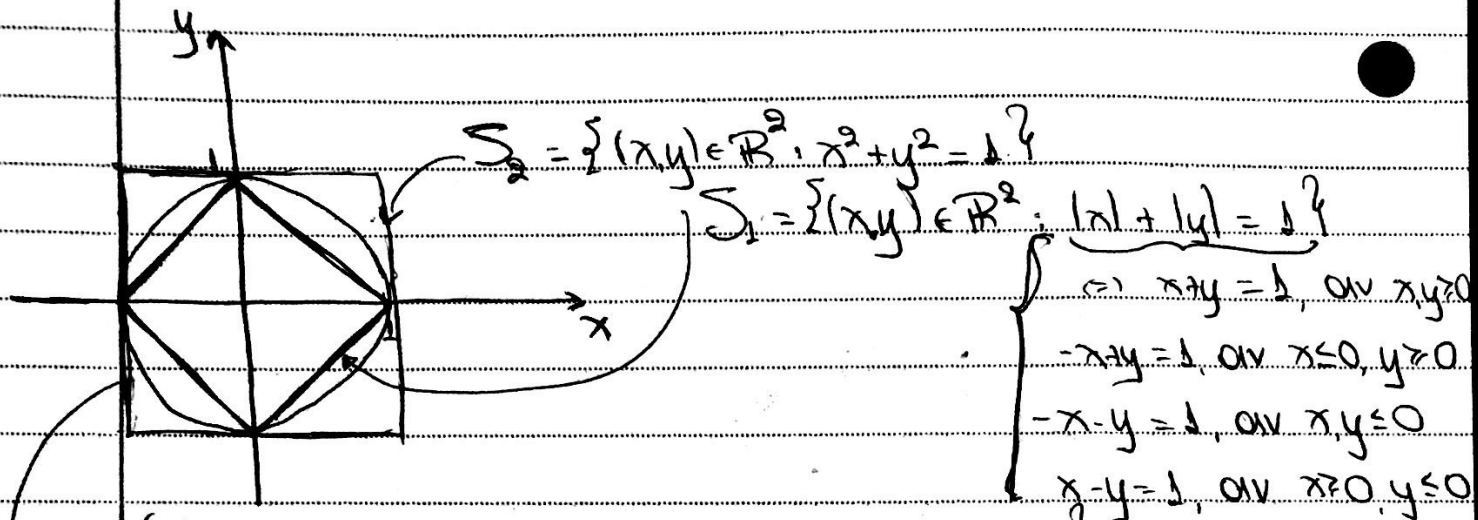 y
S₂ = {(x,y) ∈ ℝ² : x² + y² = 1}
1
S₁ = {(x,y) ∈ ℝ² : |x| + |y| = 1}
⇔ x+y = 1, αν x,y≥0
1
x
-x+y = 1, αν x≤0, y≥0
-x-y = 1, αν x,y≤0
x-y = 1, αν x≥0, y≤0